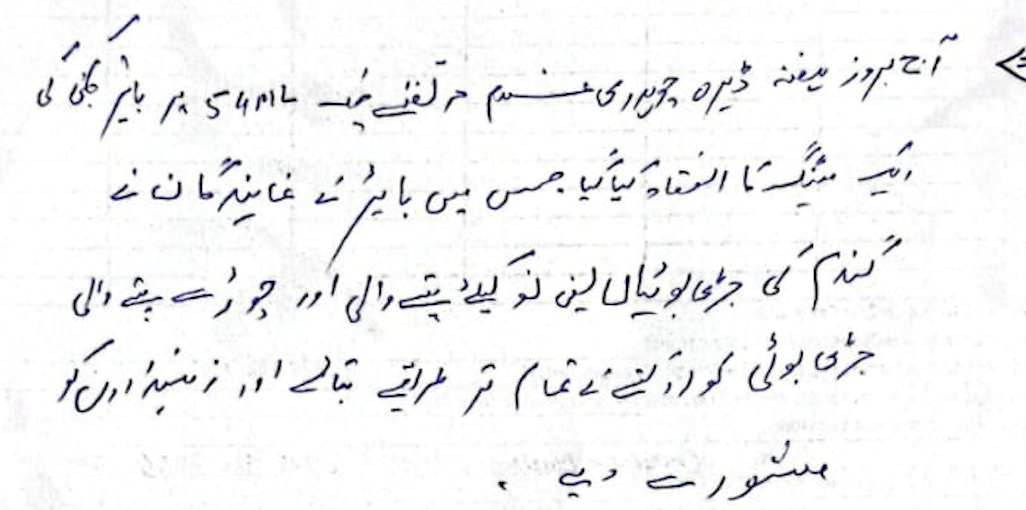 آج بروز ہفتہ ڈیرہ چوہدری غلام مرتضےٰ چک 54/12L پر بائیر کمپنی کی
ایک میٹنگ کا انعقاد کیا گیا جس میں بائیر کے نمائیندگان نے
گندم کی جڑی بوٹیاں یعنی نوکیلے پتے والی اور چوڑے پتے والی
جڑی بوٹی کو روکنے کے تمام تر طریقے بتائے اور زمیندارں کو
مشورے دیے ۔